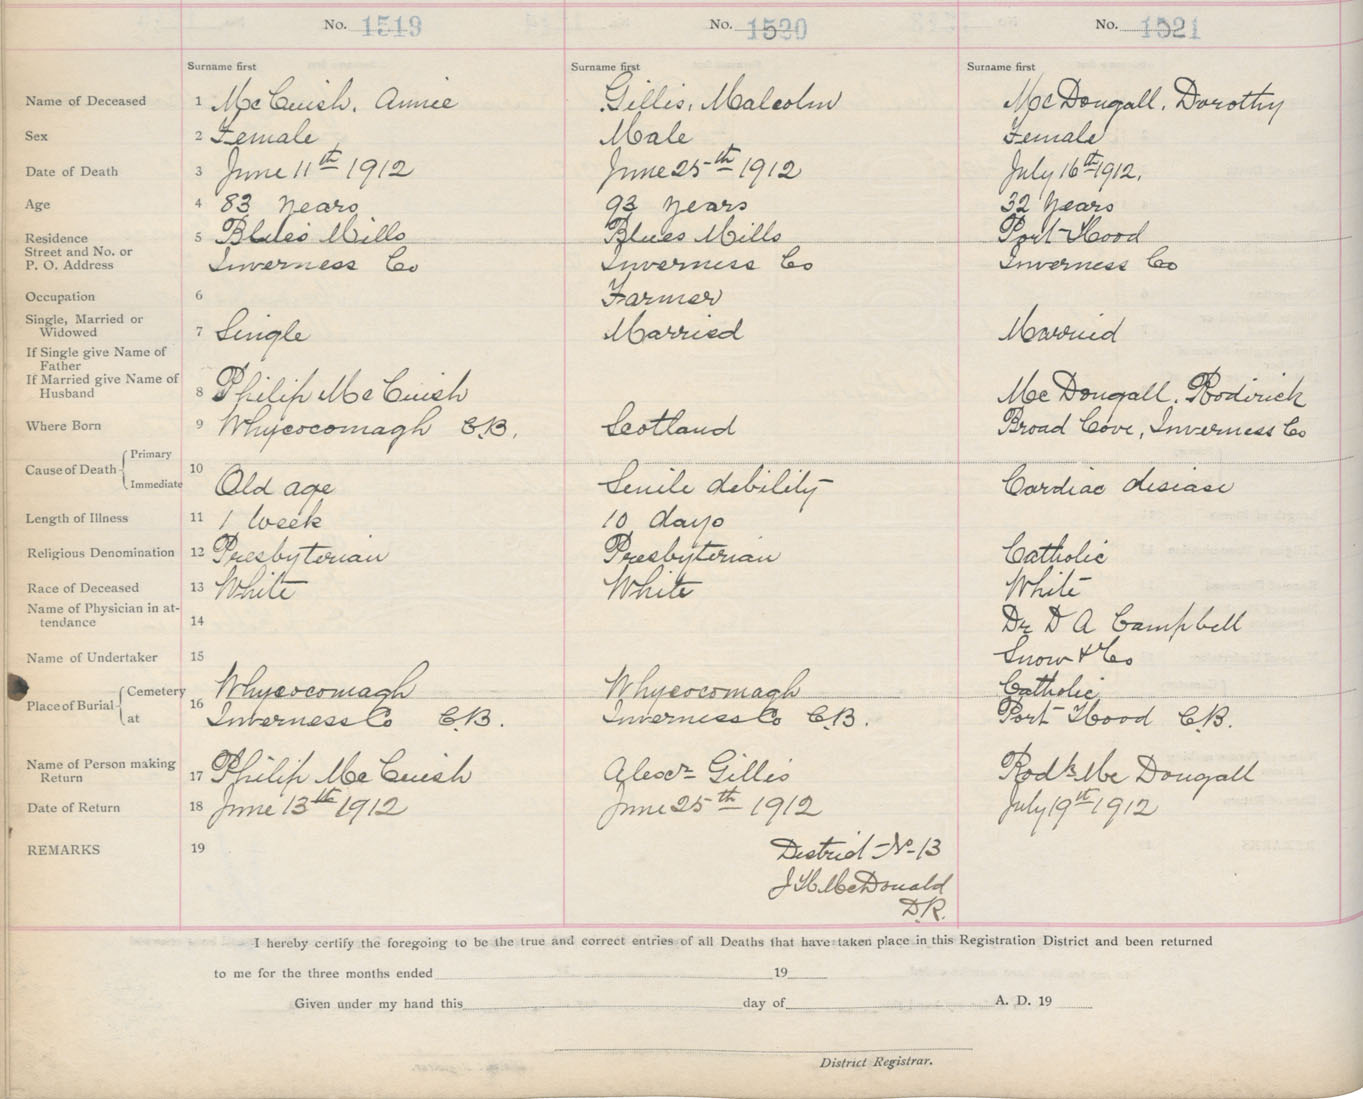 No. 1519 No. 1520 No. 1521
Surname first Surname first Surname first
Name of Deceased 1 McCuish, Annie Gillis, Malcolm McDougall, Dorothy
Sex 2 Female Male Female
Date of Death 3 June 11th 1912 June 25th 1912 July 16th 1912.
Age 4 83 years 93 years 32 years
Residence 5 Blues Mills Blues Mills Port Hood
Street and No. or
P. O. Address Inverness Co Inverness Co Inverness Co
Occupation 6 Farmer
Single, Married or
Widowed 7 Single Married Married
If Single give Name of
Father
If Married give Name of
Husband 8 Philip McCuish McDougall, Roderick
Where Born 9 Whycocomagh C.B. Scotland Broad Cove, Inverness Co
Primary
Cause of Death 10
Immediate Old age Senile debility Cardiac disease
Length of Illness 11 1 week 10 days
Religious Denomination 12 Presbyterian Presbyterian Catholic
Race of Deceased 13 White White White
Name of Physician in at-
tendance 14 Dr D A Campbell
Name of Undertaker 15 Snow & Co
Cemetery Whycocomagh Whycocomagh Catholic
Place of Burial 16
at Inverness Co C.B. Inverness Co C.B. Port Hood C.B.
Name of Person making
Return 17 Philip McCuish Alexr Gillis Rodk McDougall
Date of Return 18 June 13th 1912 June 25th 1912 July 19th 1912
REMARKS 19 District No 13
J H McDonald
D.R.
I hereby certify the foregoing to be the true and correct entries of all Deaths that have taken place in this Registration District and been returned
to me for the three months ended 19
Given under my hand this day of A. D. 19
District Registrar.